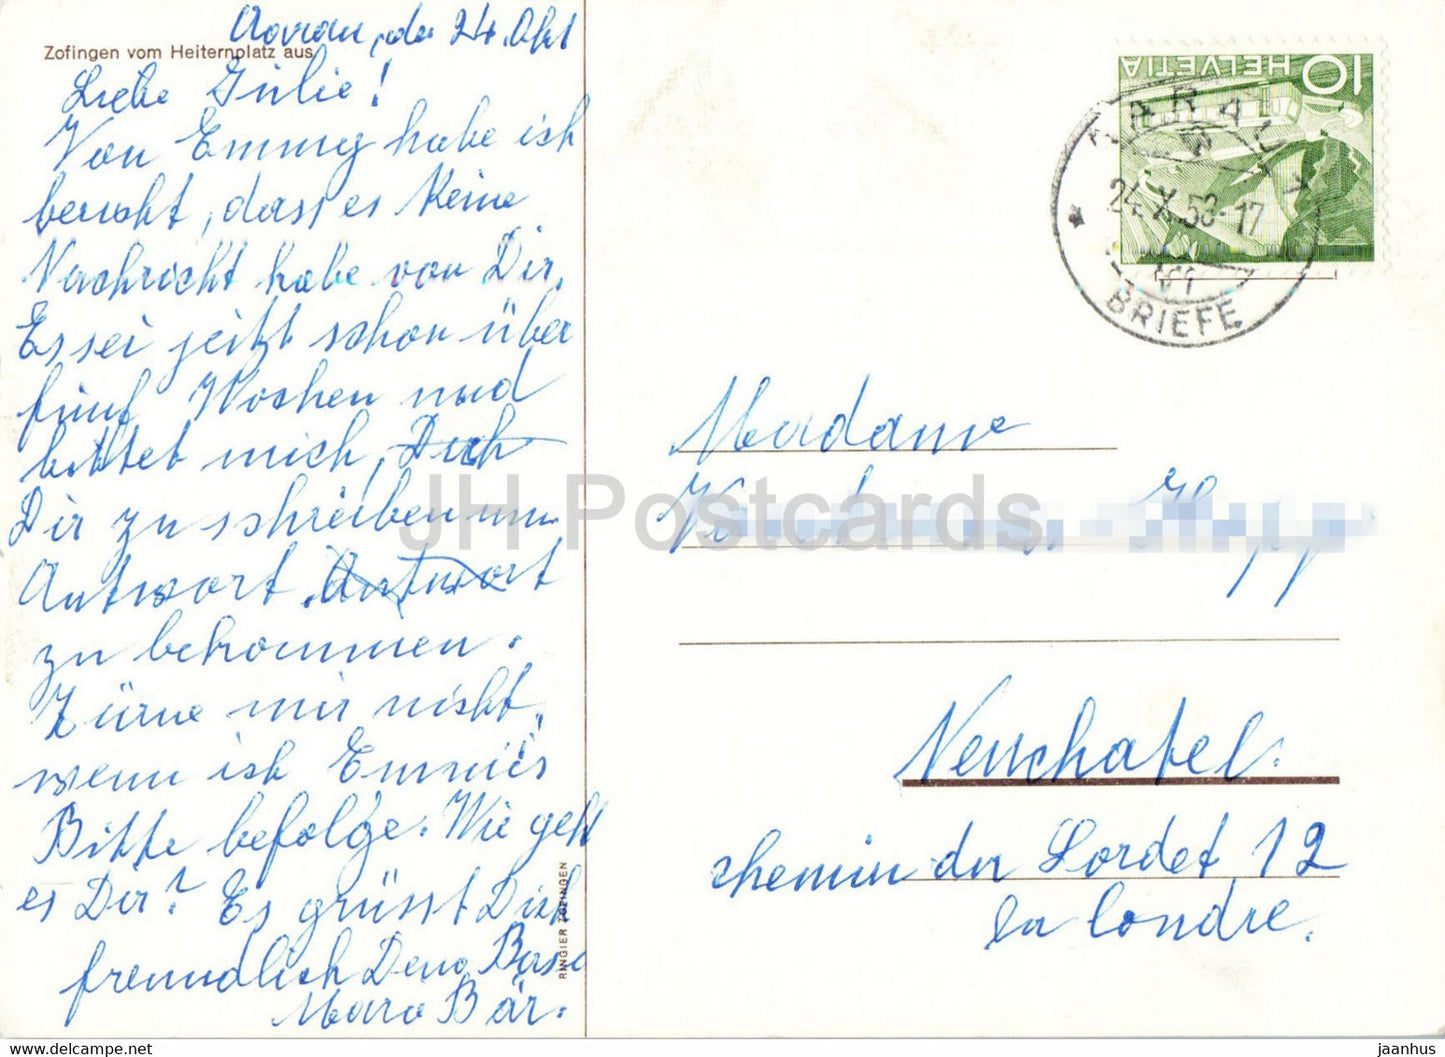 Aarau, den 24. Okt
Zofingen vom Heiternplatz aus
Liebe Gulie!
Von Emmy habe ich
bericht, dass es keine
Nachricht habe von Dir.
Es sei jeitzt schon über
fünf Wochen und
bittet mich, Dich
Dir zu schreiben um
Antwort. Antwort
zu bekommen.
Zürne mir nicht,
wenn ich Emmies
Bitte befolge. Wie geht
es Dir? Es grüsst Dich
freundlich Deine Base
Maria Bär.
RINGIER ZOFINGEN
10 HELVETIA
AARAU 1
24.X.58-17
BRIEFE
Madame
Neuchatel.
chemin du Lordet 12
la Coudre.
JH Postcards
delcampe.net
jaanhus